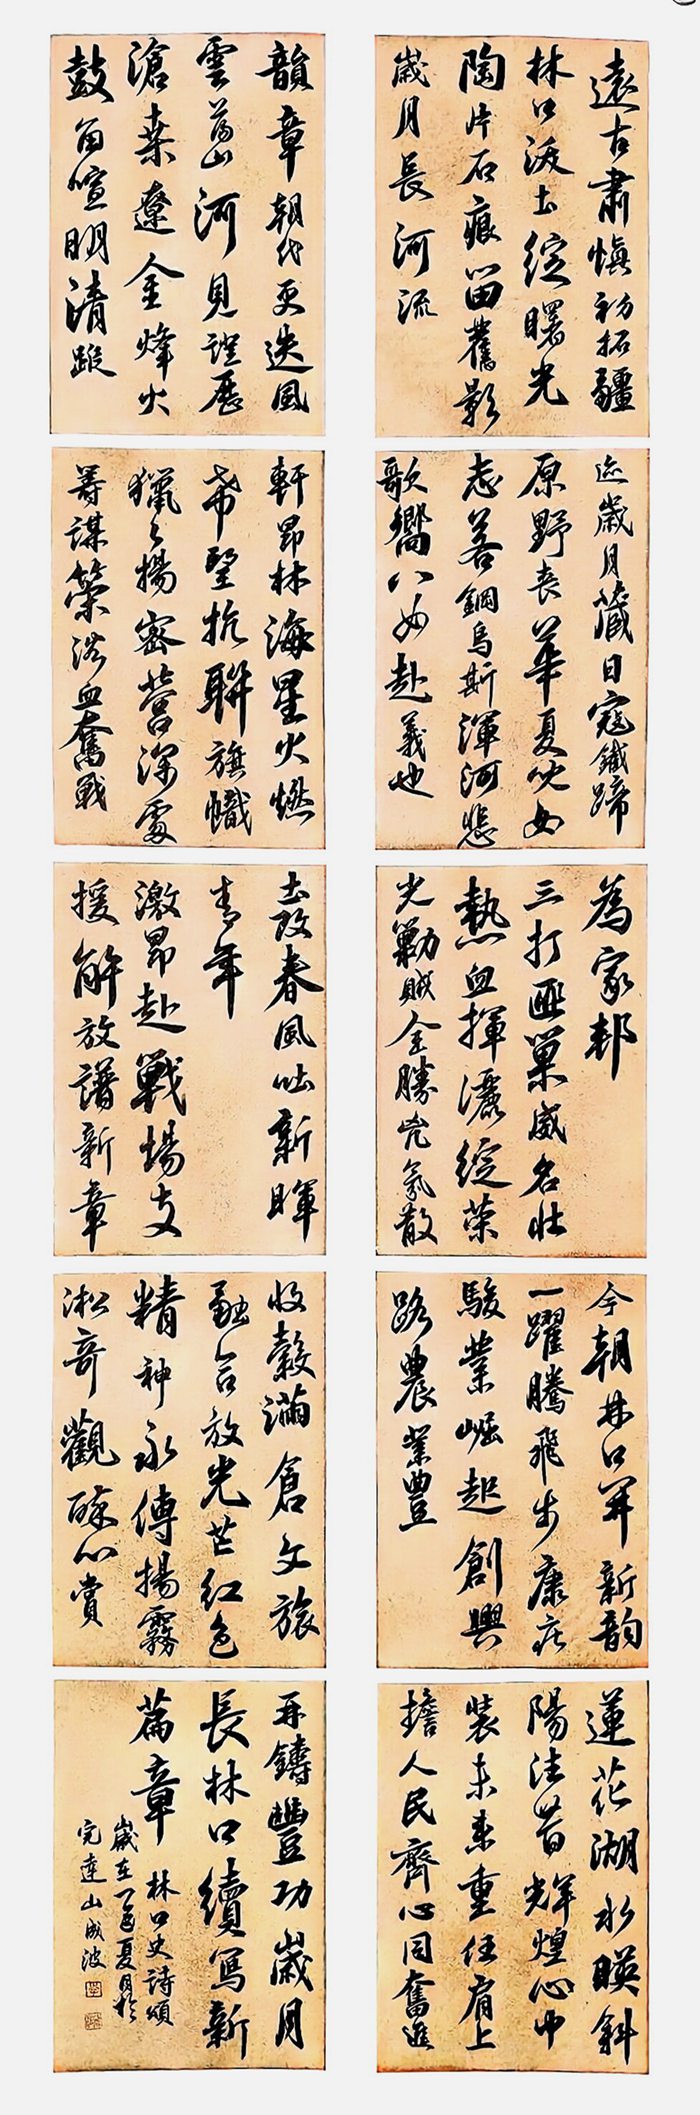 遠古肅慎初拓疆
林口沃土綻曙光
陶片石痕留舊影
歲月長河流
韻章朝代更迭風
雲蕩山河見證歷
滄桑遼金烽火
鼓角喧明清蹤
迹歲月藏日寇鐵蹄
原野喪華夏兒女
志若鋼烏斯渾河悲
歌嚮八女赴義也
軒昂林海星火燃
希望抗聯旗幟
獵々揚密營深處
籌謀策浴血奮戰
為家邦
三打匪巢威名壯
熱血揮灑綻榮
光勦賊全勝兇氛散
土改春風吐新暉
青年
激昂赴戰場支
援解放譜新章
今朝林口開新韵
一躍騰飛步康莊
駿業崛起創興
路農業豐
收穀滿倉文旅
融合放光芒紅色
精神永傳揚霧
凇奇觀醉心賞
蓮花湖水暎斜
陽往昔輝煌心中
裝未來重任肩上
擔人民齊心同奮進
再鑄豐功歲月
長林口續寫新
篇章 林口史詩頌
歲在乙巳夏月於
完達山成波